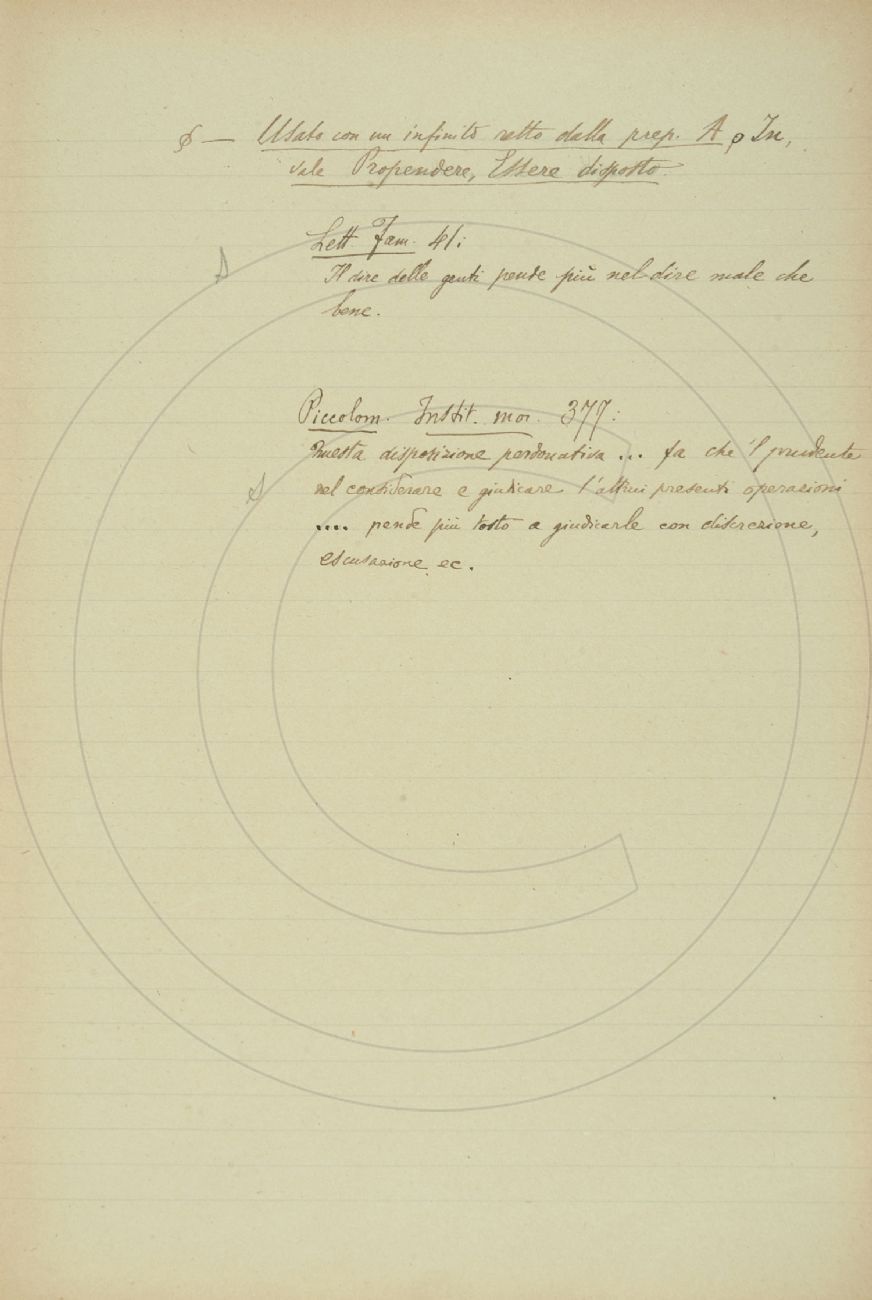 § — Usato con un infinito retto dalla prep. A, o In,
vale Propendere, Essere disposto.
Lett. Fam. 41:
Il dire delle genti pende più nel dire male che
bene.
Piccolom. Instit. mor. 377:
Questa disposizione perdonativa ... fa che 'l prudente
nel considerare e giudicare l'altrui presenti operazioni
.... pende più tosto a giudicarle con discrezione,
escusazione ec.